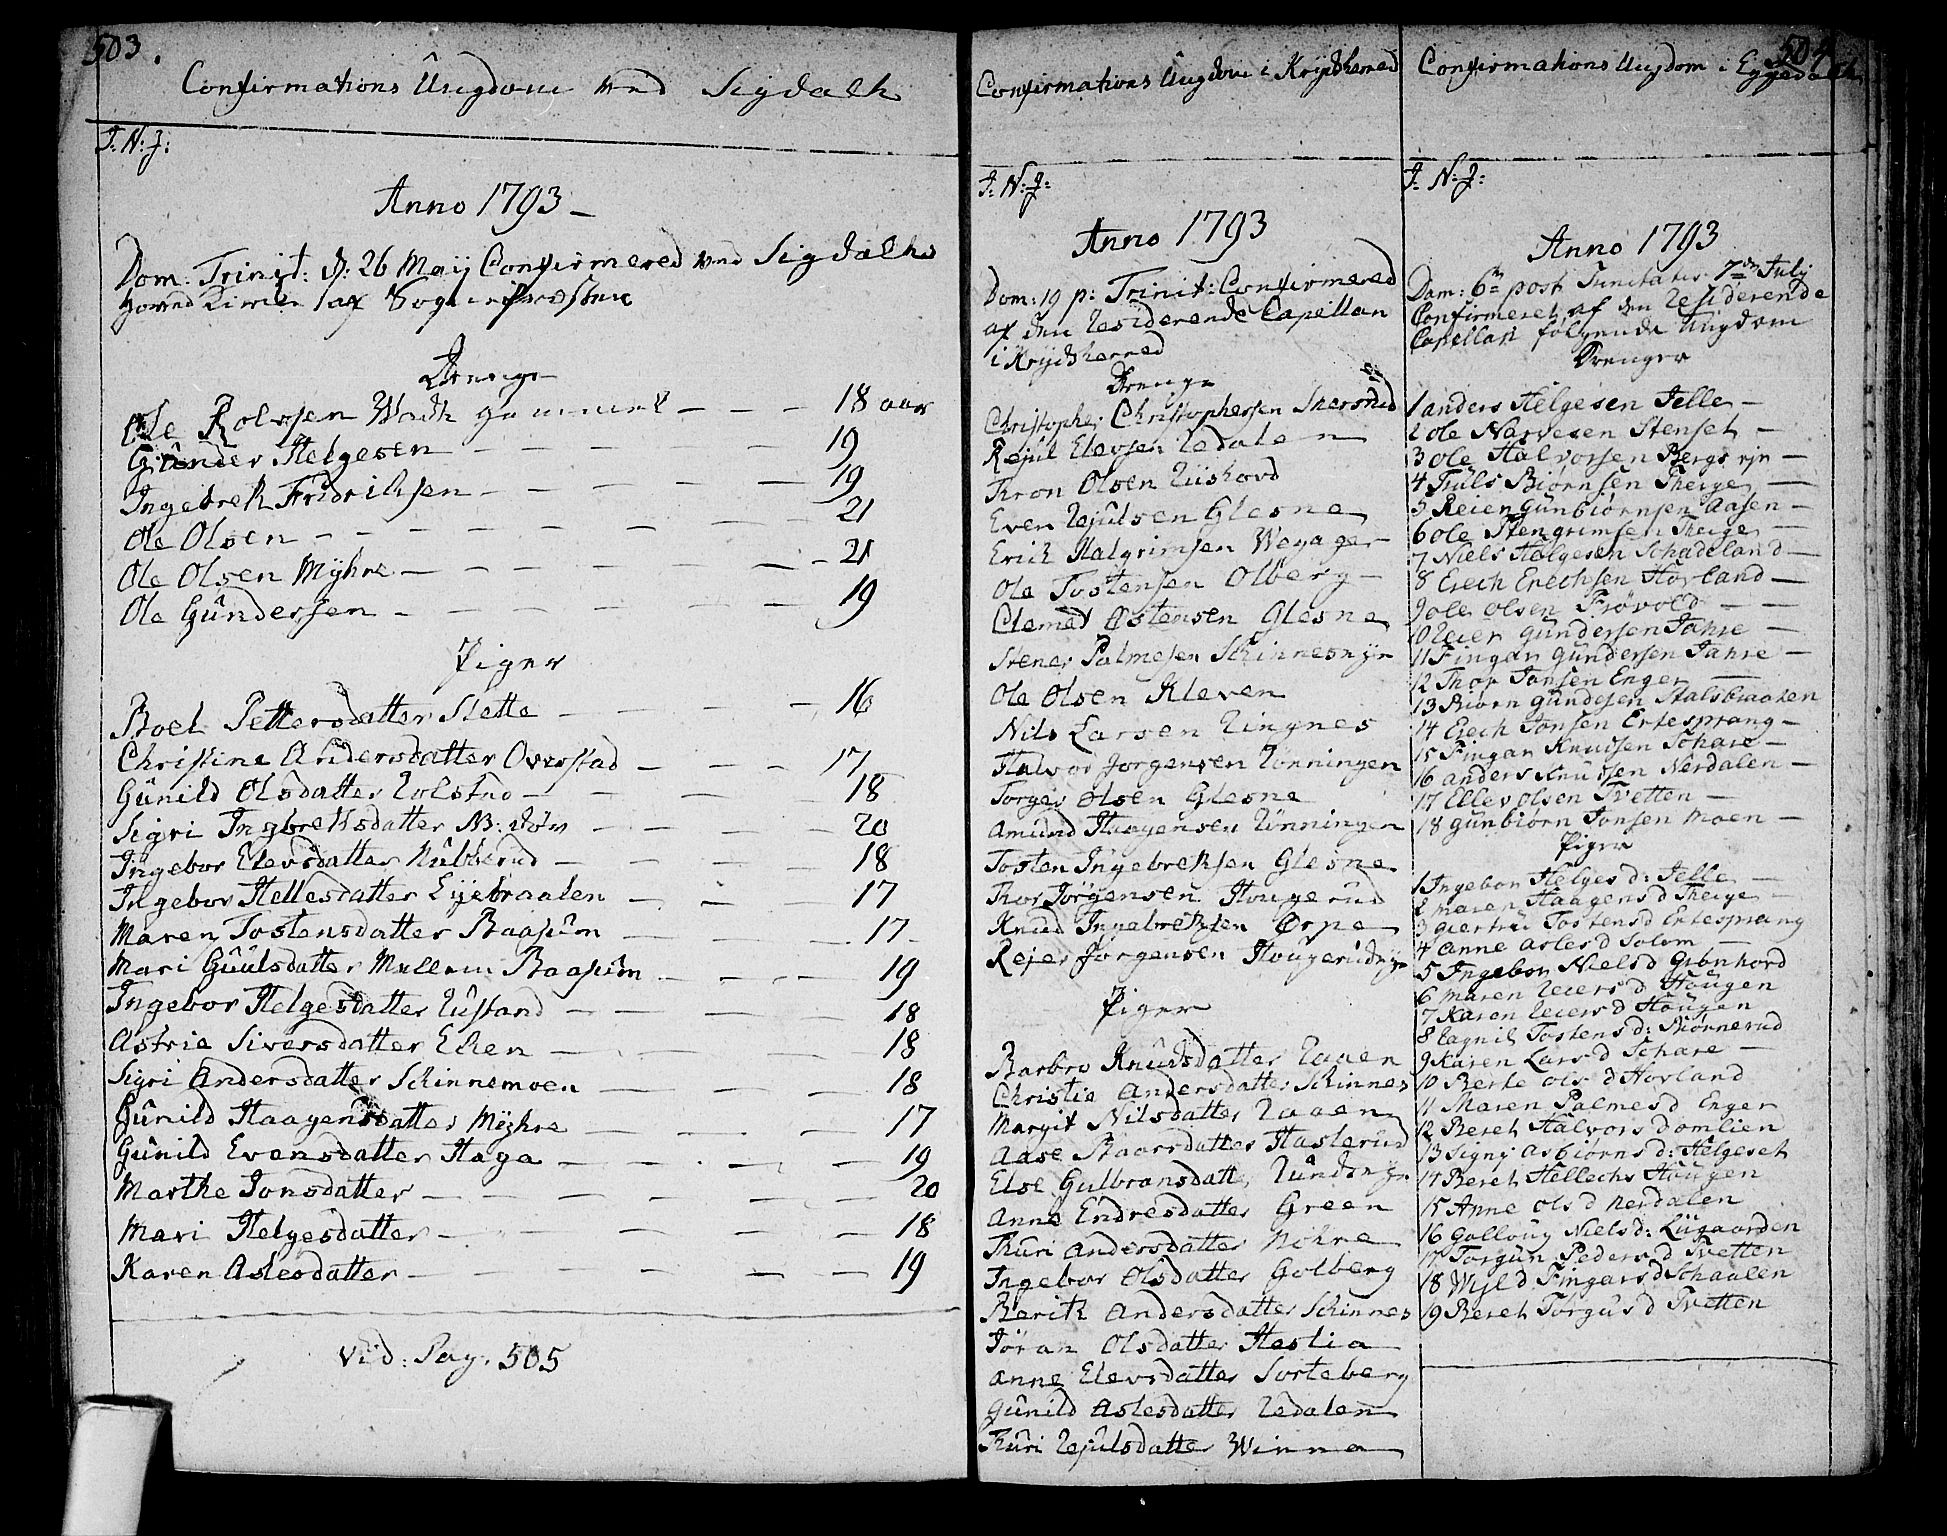 503.
Confirmations Ungdom ved Sigdahls
J: N: J:
Anno 1793 -
Dom: Trinit: d: 26 Maij Confirmered ved Sigdahls
Hoved Kirke af Sogne Præsten
Drenge
Ole Rolfsen Wadt gammel - - - 18 aar
Gunder Helgesen - - - 19
Ingebrekt Fridriksen - - - 19
Ole Olsen - - - 21
Ole Olsen Myhre - - - 21
Ole Gundersen - - - 19
Piger
Boel Pettersdatter Slette - - - 16
Christine Andersdatter Overstad - - - 17
Gunild Olsdatter Rolstad - - - 18
Sigri Ingbrektsdatter - - - 20
Ingebor Elevsdatter Nubberud - - - 18
Ingebor Hellesdatter Eijebraaten - - - 17
Maren Tostensdatter Baasum - - - 17
Mari Guulsdatter Mellem Baasum - - - 19
Ingebor Helgesdatter Rustand - - - 18
Astrie Siversdatter Eken - - - 18
Sigri Andersdatter Skinnemoen - - - 18
Gunild Haagensdatter Myhre - - - 17
Gunild Evensdatter Haga - - - 19
Marthe Jonsdatter - - - 20
Mari Helgesdatter - - - 18
Karen Aslesdatter - - - 19
Vid: Pag. 505
Confirmations Ungdom i Krydsherred
J: N: J:
Anno 1793
Dom: 19 p: Trinit: Confirmered
af den Residerende Capellan
i Krydsherred
Drenge
Christopher Christophersen Skersrud
Rejul Elevsen Redalen
Thron Olsen Riishovd
Even Rejulsen Glesne
Erick Halgrimsen Wegager
Ole Tostensen Olberg
Clemet Østensen Glesne
Stener Palmesen Skinnesnye
Ole Olsen Kleven
Nils Larsen Ringnes
Halvor Jorgensen Rønningen
Torger Olsen Glesne
Amund Haagensen Rønningen
Tosten Ingebreksen Glesne
Thor Jørgensen Hougerud
Knud Ingebreksen Ørpe
Rejer Jorgensen Hougerudnye
Piger
Barbro Knudsdatter Raaen
Christie Andersdatter Skinnes
Margit Nilsdatter Raaen
Aase Baarsdatter Haslerud
Else Gulbransdatter Rundsnye
Anne Endresdatter Green
Thuri Andersdatter Nohre
Ingebor Olsdatter Golberg
Berith Andersdatter Skinnes
Jøran Olsdatter Heslia
Anne Elevsdatter Sorteberg
Gunild Aslesdatter Redalen
Thuri Rejulsdatter Winna
504
Confirmations Ungdom i Eggedahl
J: N: J:
Anno 1793
Dom: 6te post Trinitatis 7de July
Confirmeret af den Residerende
Capellan følgende Ungdom
Drenger
1 Anders Helgesen Jelle -
2 Ole Narvesen Stenset -
3 Ole Halvorsen Bergs eje -
4 Truls Biørnsen Theige -
5 Reien Gunbiørnsen Aasen -
6 Ole Stengrimsen Theige -
7 Niels Helgesen Schadeland -
8 Erech Erechsen Hovland -
9 Ole Olsen Frøvold - -
10 Reier Gundersen Jahre -
11 Fingar Gundersen Jahre -
12 Thor Jonsen Enger -
13 Biørn Gundesen Stalsbraaten
14 Erech Jonsen Ertesprang -
15 Fingar Knudsen Schare -
16 Anders Knudsen Nerdalen -
17 Ellev Olsen Tvetten -
18 Gunbiørn Jonsen Moen -
Piger
1 Ingebor Helgesd: Jelle -
2 Maren Haagensd Theige -
3 Giertrud Tostensd Ertesprang
4 Anne Aslesd Solem -
5 Ingebor Nielsd Grønhord
6 Maren Reiersd Haugen
7 Karen Reiersd Haugen
8 Ragnil Tostensd: Biørnerud
9 Karen Larsd Schare -
10 Berte Olsd Hovland
11 Maren Palmesd Enger
12 Beret Halvorsd omlien
13 Signj Asbiørnsd: Helgeset
14 Beret Hellechs Haugen
15 Anne Olsd Nerdalen
16 Golloug Nielsd: Liigaarden
17 Torgun Pedersd Tvetten
18 Wild Fingarsd Schaalen
19 Beret Torgusd Tvetten